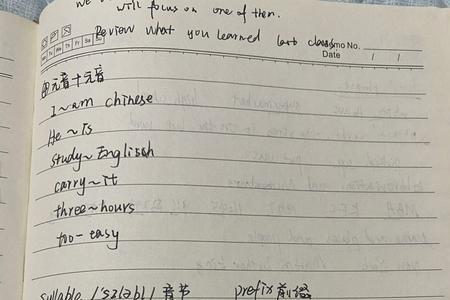 will focus on one of them.
Review what you learned last class
Memo No.
Mo Tu We Th Fr Sa Su
Date / /
④元音+元音
I~am chinese
He~is
study~English
carry~it
three~hours
too-easy
syllable /'sɪləbl/ 音节 prefix前缀